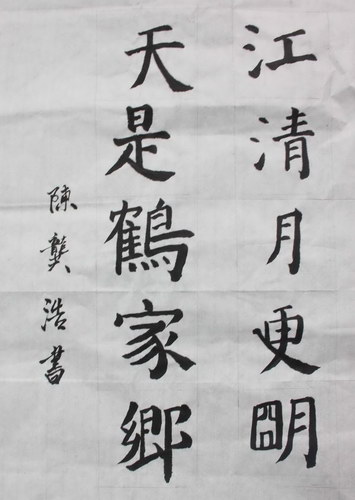 江清月更明
天是鶴家鄉
陳龔浩書